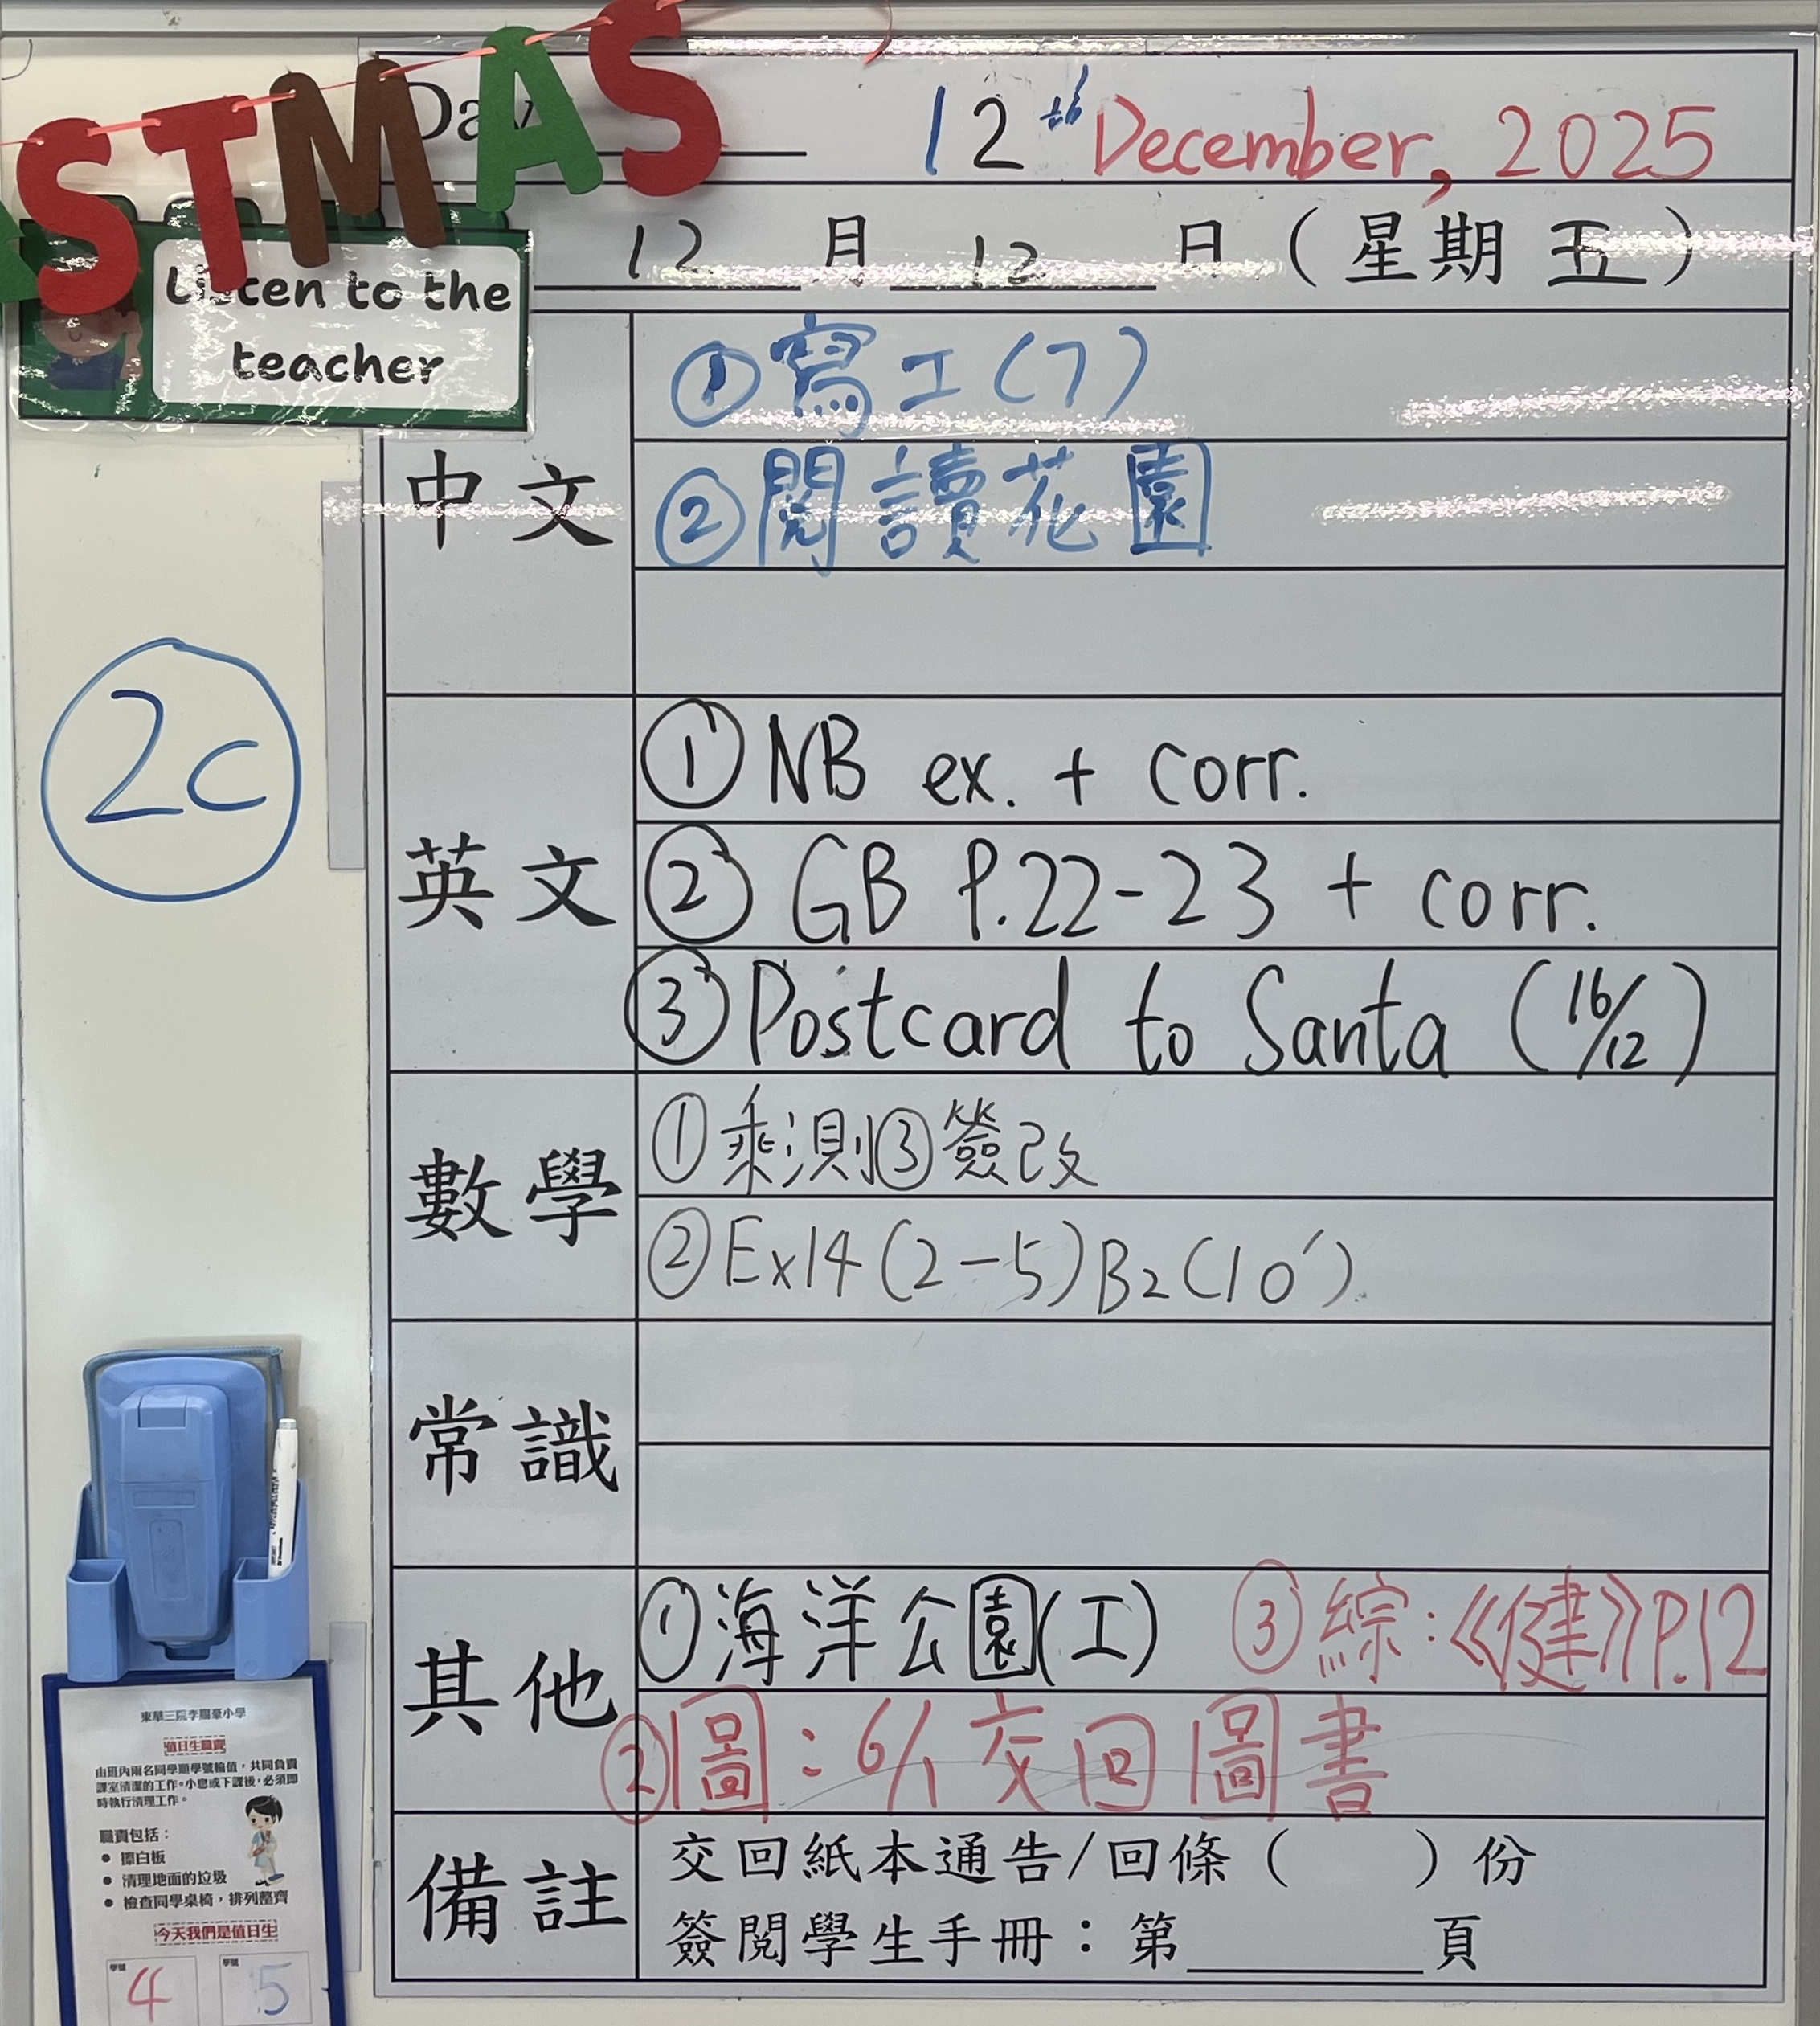 STMAS
Day
12th December, 2025
12月12日（星期五）
Listen to the
teacher
中文
①寫工(7)
②閱讀花園
2C
英文
①NB ex. + corr.
②GB P.22-23 + corr.
③Postcard to Santa (16/12)
數學
①乘測③簽改
②Ex14(2-5)B2(10')
常識
其他
①海洋公園(工) ③綜:《健》P.12
②圖:6/1交回圖書
備註
交回紙本通告/回條（ ）份
簽閱學生手冊：第____頁
東華三院李賜豪小學
值日生職責
由班內兩名同學順學號輪值，共同負責
課室清潔的工作。小息或下課後，必須即
時執行清理工作。
職責包括：
• 擦白板
• 清理地面的垃圾
• 檢查同學桌椅，排列整齊
今天我們是值日生
學號 學號
4 5